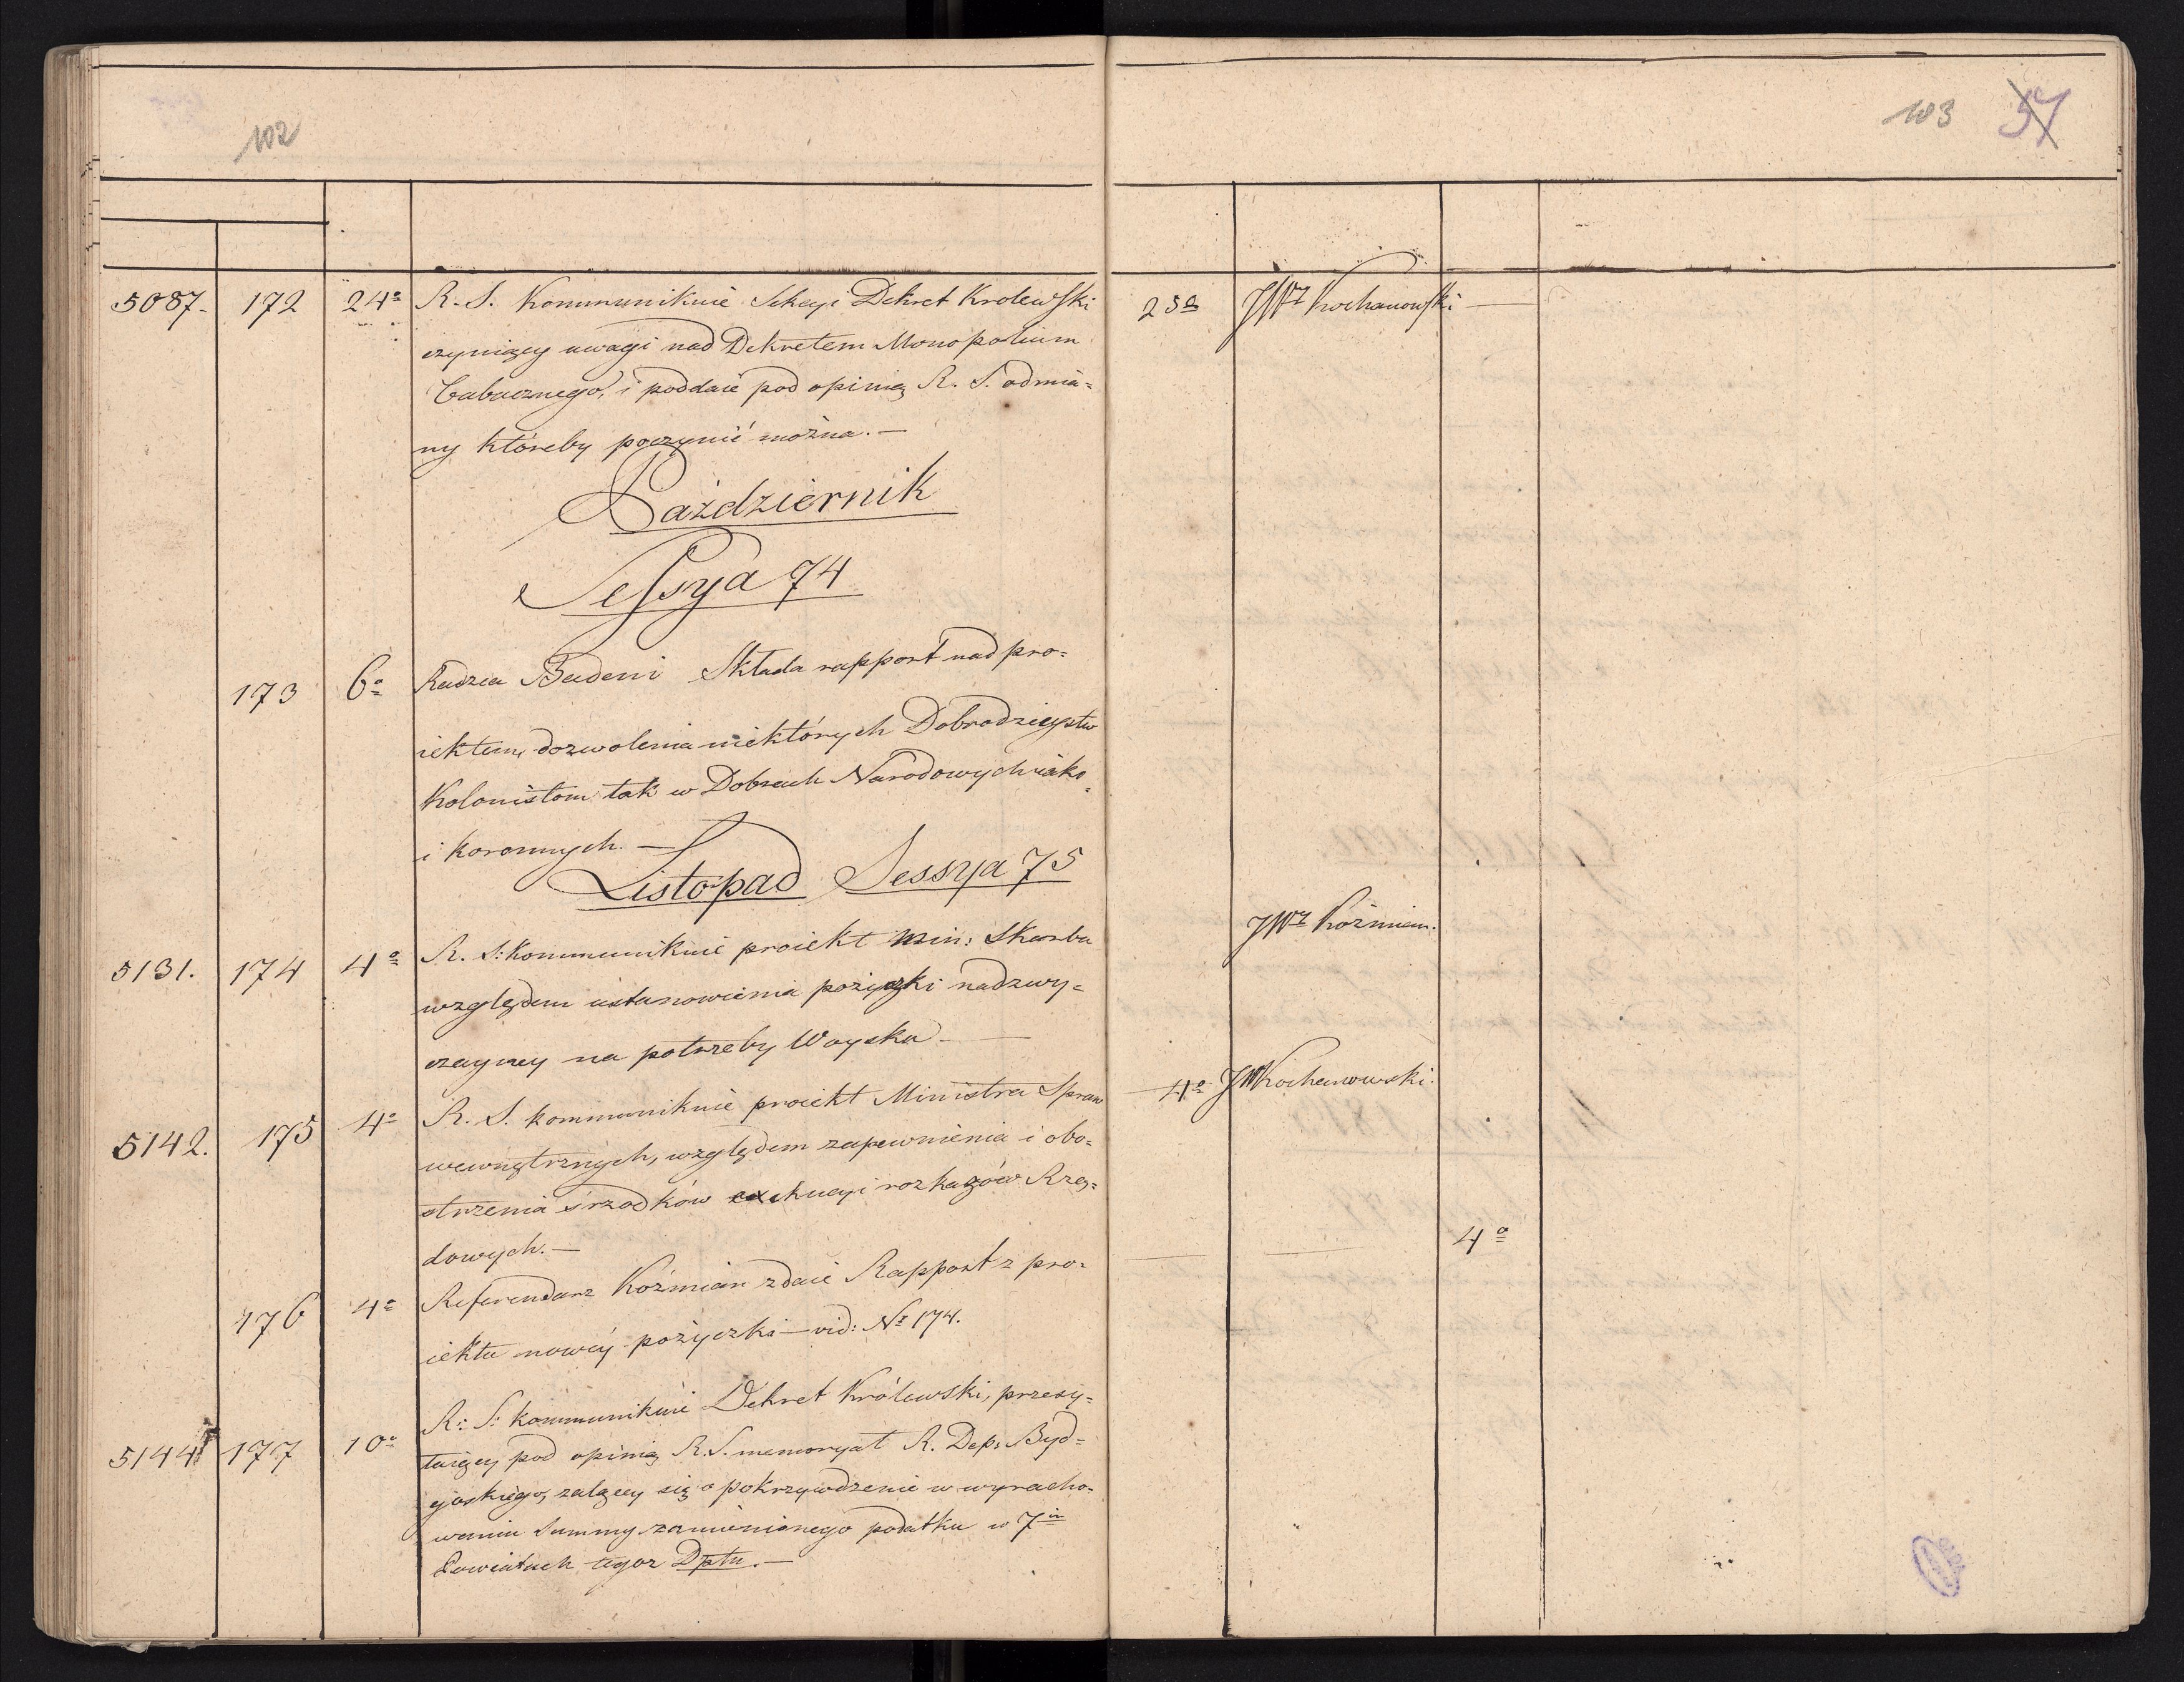 102
5087. 172 24ª R. S. Kommunikuie Sekcyi Dekret KrolewSki
czyniący uwagi nad Dekretem Monopolium
Tabacznego, i poddaie pod opinią R. S. odmia=
ny któreby poczynić można. —
Październik
Sessya 74
173 6º Radzca Badeni Składa rapport nad pro=
iektem, dozwolenia niektórych Dobrodzieystw
Kolonistom tak w Dobrach Narodowych iako
i koronnych. —
Listopad Sessya 75
5131. 174 4º R. S: Kommunikuie proiekt Min: Skarbu
względem ustanowienia pożyczki nadzwy=
czayney na potrzeby Woyska —
5142. 175 4º R. S. kommunikuie proiekt Ministra Spraw
wewnętrznych, względem zapewnienia i obo=
strzenia śrzodków exekucyi rozkazów Rzą=
dowych. —
176 4º Referendarz Koźmian zdaie Rapport z pro=
iektu nowéy pożyczki — vid: Nº 174.
5144 177 10º R: S: kommunikuie Dekret Królewski, przesy=
łaiący pod opinią R. S. memoryał R. Dep: Byd=
goskiego, żalący się o pokrzywdzenie w wyracho=
waniu Summy zamienionego podatku w 7iu
Powiatach tegoż Dptu. —
103 57
25ª JWż Kochanowski —
JWż Koźmian.
4º JW Kochanowski.
4º